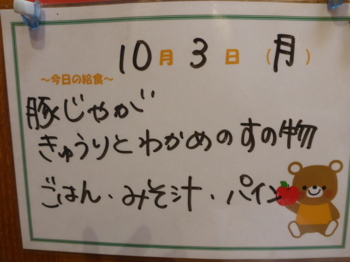 10月3日(月)
～今日の給食～
豚じゃが
きゅうりとわかめのすの物
ごはん・みそ汁・パイン